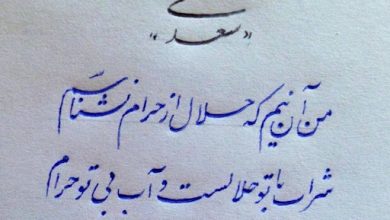 «سعدی»
من آن نیم که حلال از حرام نشناسم
شراب با تو حلالست و آب بی تو حرام